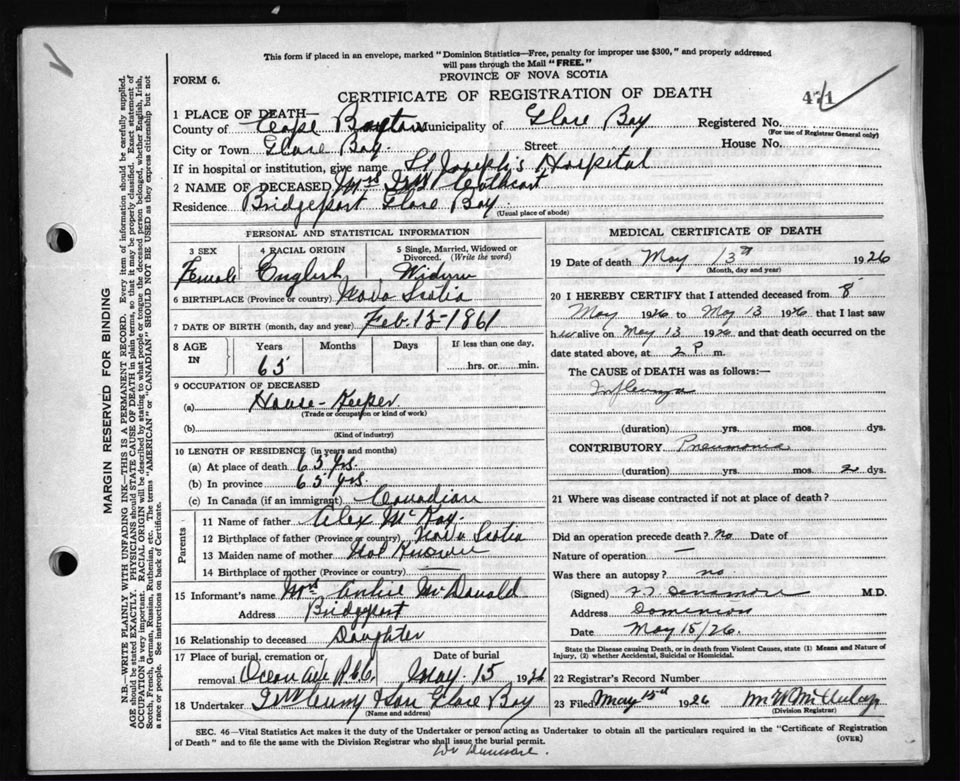 This form if placed in an envelope, marked "Dominion Statistics—Free, penalty for improper use $300," and properly addressed
will pass through the Mail "FREE."
PROVINCE OF NOVA SCOTIA
FORM 6.
CERTIFICATE OF REGISTRATION OF DEATH
471
1 PLACE OF DEATH—
County of Cape Breton Municipality of Glace Bay Registered No.
(For use of Registrar General only)
City or Town Glace Bay. Street House No.
If in hospital or institution, give name St Joseph's Hospital
2 NAME OF DECEASED Mrs
Residence Bridgeport Glace Bay.
(Usual place of abode)
PERSONAL AND STATISTICAL INFORMATION
3 SEX 4 RACIAL ORIGIN 5 Single, Married, Widowed or
Divorced. (Write the word)
Female English Widow
6 BIRTHPLACE (Province or country) Nova Scotia
7 DATE OF BIRTH (month, day and year) Feb. 13-1861
8 AGE IN Years Months Days If less than one day,
65 hrs. or min.
9 OCCUPATION OF DECEASED
(a) House-Keeper
(Trade or occupation or kind of work)
(b)
(Kind of industry)
10 LENGTH OF RESIDENCE (in years and months)
(a) At place of death 65 yrs.
(b) In province 65 yrs.
(c) In Canada (if an immigrant) Canadian
Parents
11 Name of father Alex McKay.
12 Birthplace of father (Province or country) Nova Scotia
13 Maiden name of mother Not Known
14 Birthplace of mother (Province or country) —
15 Informant's name Mrs McDonald
Address Bridgeport
16 Relationship to deceased Daughter
17 Place of burial, cremation or Date of burial
removal Ocean Ave May. 15 1926
18 Undertaker Son Glace Bay
(Name and address)
MEDICAL CERTIFICATE OF DEATH
19 Date of death May 13th 1926
(Month, day and year)
20 I HEREBY CERTIFY that I attended deceased from 8
May 1926 to May 13 1926 that I last saw
her alive on May 13 1926 and that death occurred on the
date stated above, at 2 P m.
The CAUSE of DEATH was as follows:—
Influenza
(duration) yrs. mos. dys.
CONTRIBUTORY Pneumonia
(duration) yrs. mos. 2 dys.
21 Where was disease contracted if not at place of death?
Did an operation precede death? no Date of
Nature of operation —
Was there an autopsy? no.
(Signed) M.D.
Address Dominion
Date May 15/26.
State the Disease causing Death, or in death from Violent Causes, state (1) Means and Nature of
Injury, (2) whether Accidental, Suicidal or Homicidal.
22 Registrar's Record Number
23 Filed May 15th 1926
(Division Registrar)
SEC. 46—Vital Statistics Act makes it the duty of the Undertaker or person acting as Undertaker to obtain all the particulars required in the "Certificate of Registration
of Death" and to file the same with the Division Registrar who shall issue the burial permit.
(OVER)
MARGIN RESERVED FOR BINDING
N.B.—WRITE PLAINLY WITH UNFADING INK—THIS IS A PERMANENT RECORD. Every item of information should be carefully supplied.
AGE should be stated EXACTLY. PHYSICIANS should STATE CAUSE OF DEATH in plain terms, so that it may be properly classified. Exact statement of
OCCUPATION is very important. RACIAL ORIGIN will be described by stating to what people or tongue the deceased person belonged, whether English, Irish,
Scotch, French, German, Russian, Ruthenian, etc. The terms "AMERICAN" or "CANADIAN" SHOULD NOT BE USED as they express citizenship but not
a race or people. See instructions on back of Certificate.